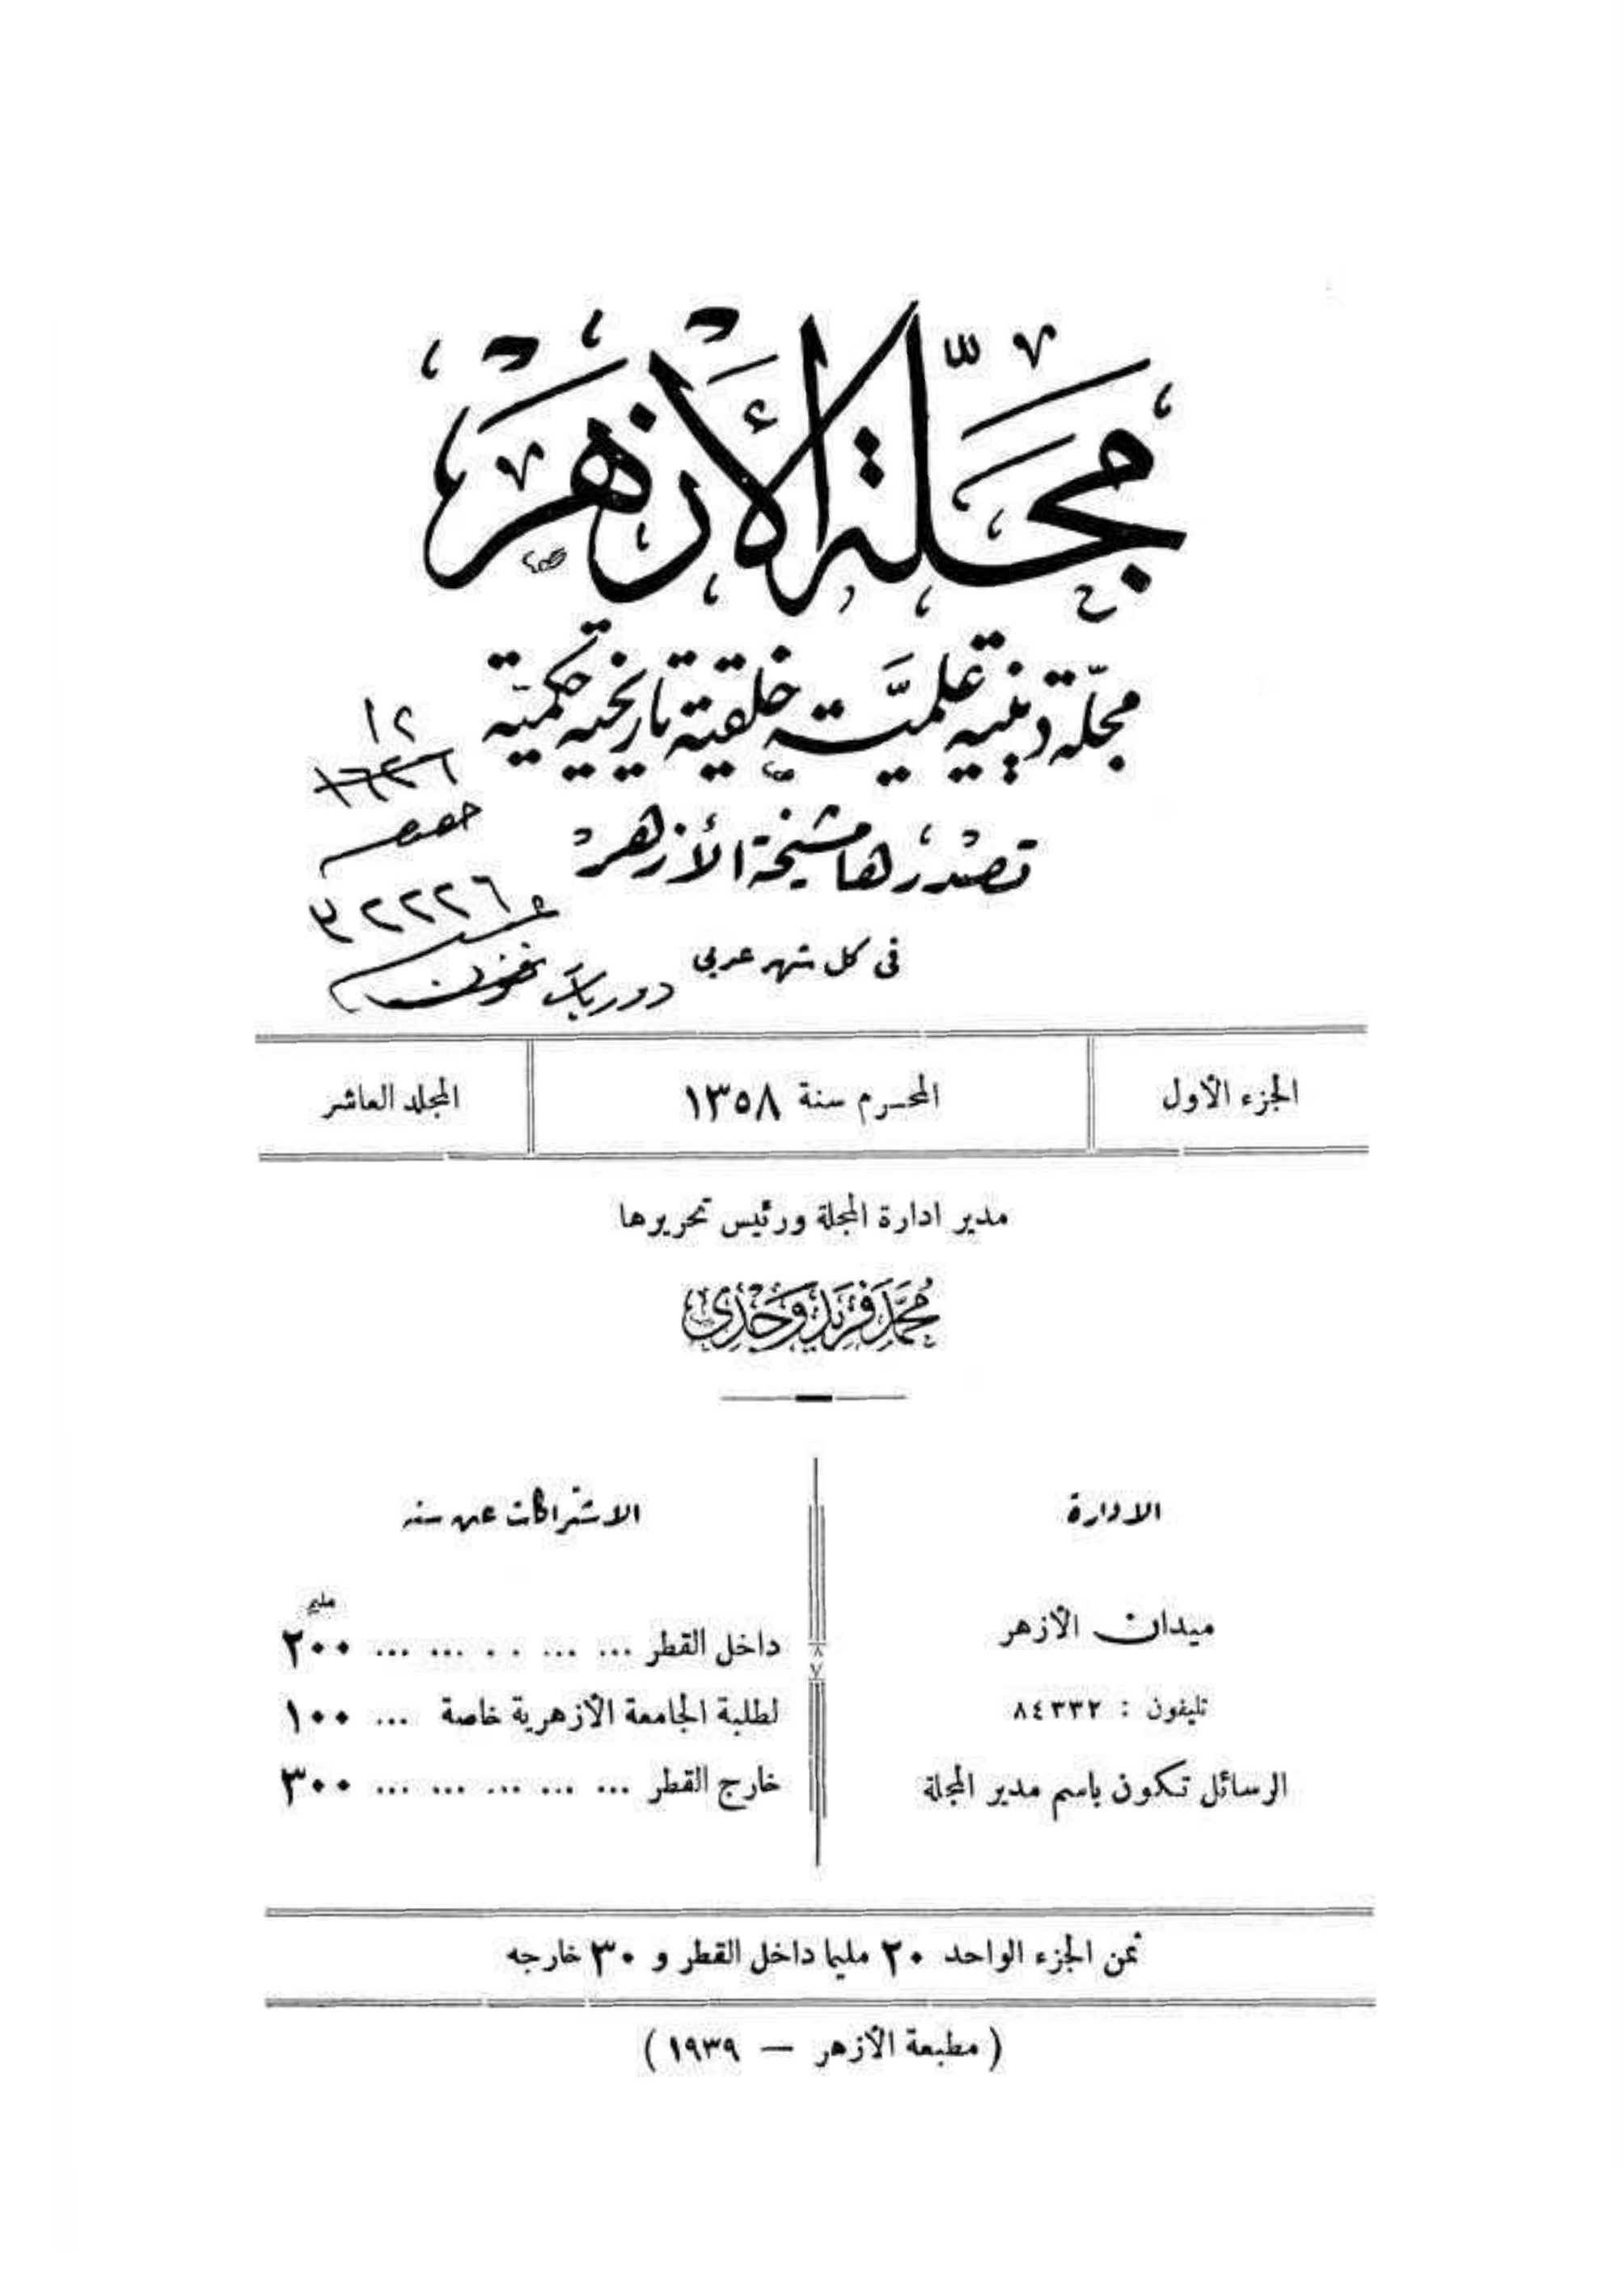 مجلة الأزهر
مجلة دينية علمية خلقية تاريخية حكمية
تصدرها مشيخة الأزهر
فى كل شهر عربى
١٢
٣٢٢٢٦
دوريات
الجزء الأول
المحرم سنة ١٣٥٨
المجلد العاشر
مدير ادارة المجلة ورئيس تحريرها
محمد فريد وجدى
الادارة
ميدان الأزهر
تليفون : ٨٤٣٣٢
الرسائل تكون باسم مدير المجلة
الاشتراكات عن سنة
مليم
داخل القطر ... ... . . ... ... ٢٠٠
لطلبة الجامعة الأزهرية خاصة ... ١٠٠
خارج القطر ... ... ... ... ... ٣٠٠
ثمن الجزء الواحد ٢٠ مليما داخل القطر و ٣٠ خارجه
( مطبعة الأزهر — ١٩٣٩ )